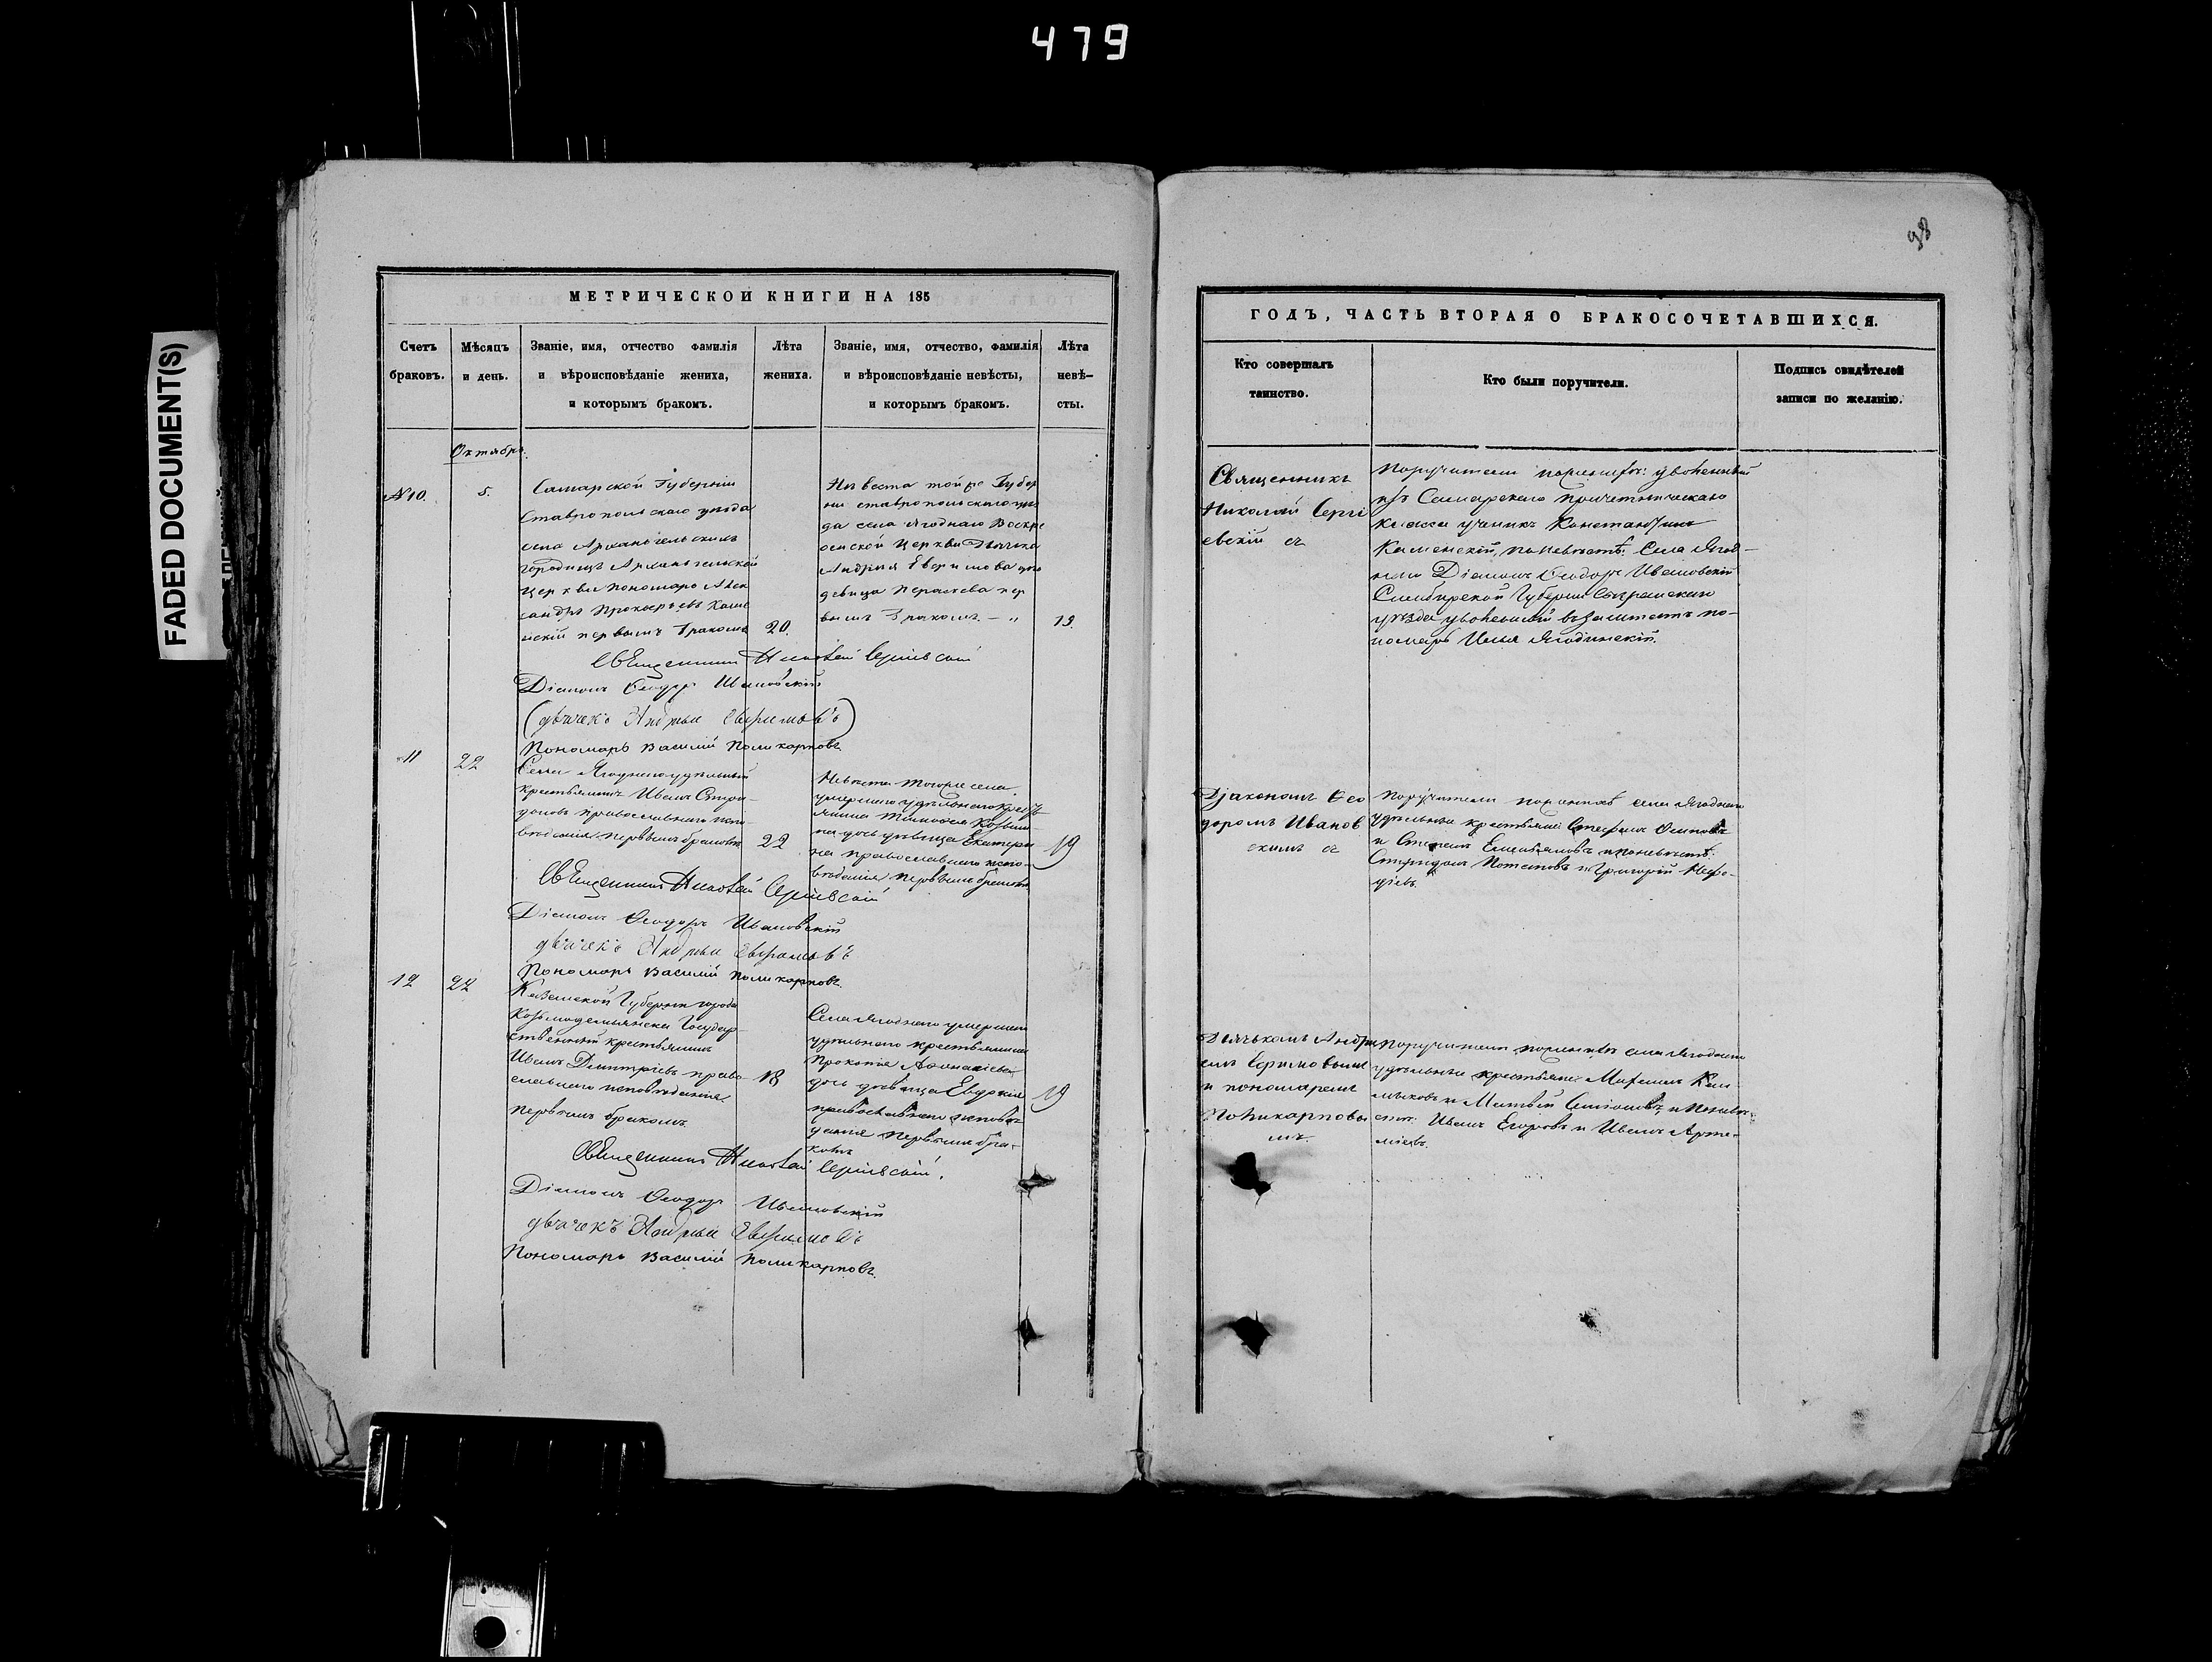 479
FADED DOCUMENT(S)
38
МЕТРИЧЕСКОЙ КНИГИ НА 185
Счетъ браковъ.
Мѣсяцъ и день.
Званіе, имя, отчество фамилія
и вѣроисповѣданіе жениха,
и которымъ бракомъ.
Лѣта жениха.
Званіе, имя, отчество, фамилія
и вѣроисповѣданіе невѣсты,
и которымъ бракомъ.
Лѣта невѣ-
сты.
Октябрь.
№10.
5.
Самарской Губерніи
Ставропольскаго уезда
села
Городищъ Архангельской
Церкви пономарь Алек
сандръ
первымъ бракомъ
20.
Невеста той же Губер
ни ставропольскаго уез
да села Ягоднаго Воскре
сенской Церкви Дьячка
Андрея Ефримова
девица пер
вымъ бракомъ. — "
19.
Священникъ Николай Сергіевскій
Діаконъ Ѳеодоръ Ивановскій
(дьячекъ Андрей Ефримовъ)
Пономарь Василий Поликарповъ.
11
22
Села Ягоднаго удѣльный
крестьянинъ Иванъ Спири-
доновъ православнаго испо-
вѣданія первымъ бракомъ
22
Невѣста тогоже села
умершаго удѣльнаго кресть-
янина
дочь дѣвица Екатери
на православнаго испо-
вѣданія первымъ бракомъ
19
Священникъ Николай Сергіевскій
Діаконъ Ѳеодоръ Ивановскій
дьячекъ Андрей Ефримовъ
Пономарь Василий Поликарповъ.
12
24
Казанской Губерніи города
Козьмодемьянска Государ-
ственный крестьянинъ
Иванъ Дмитріевъ право-
славнаго исповѣданія
первымъ бракомъ
18
Села Ягоднаго умершаго
удѣльнаго крестьянина
Прокопія
дочь дѣвица Евдокія
православнаго исповѣ-
данія первымъ бра-
комъ
19
Священникъ Николай Сергіевскій.
Діаконъ Ѳеодоръ Ивановскій
дьячекъ Андрей Ефримовъ
Пономарь Василий Поликарповъ.
ГОДЪ, ЧАСТЬ ВТОРАЯ О БРАКОСОЧЕТАВШИХСЯ.
Кто совершалъ
таинство.
Кто были поручители.
Подпись свидѣтелей
записи по желанію.
Священникъ
Николай Сергі
евскій съ
Поручители по женихѣ: уволенный
изъ Самарскаго причетническаго
класса ученикъ Константинъ
Каменскій, по невѣстѣ: Села Ягод-
наго Діаконъ Ѳеодоръ Ивановскій
Симбирской Губерніи Сызранскаго
уѣзда уволенный по-
номарь Илья Ягодинскій.
Діакономъ Ѳео
доромъ Иванов
скимъ съ
Поручители по женихѣ села Ягоднаго
удѣльные крестьяне: Стефанъ Осиповъ
и Емельяновъ и по невѣстѣ:
Спиридонъ Потаповъ и Григорій
Дьячькомъ Андре
емъ Ефримовымъ
и пономаремъ
Поликарповы
мъ.
Поручители по женихѣ села Ягоднаго
удѣльные крестьяне: Максимъ Кал-
мыковъ и Матвѣй и по невѣ-
стѣ: Иванъ Егоровъ и Иванъ Арте-
міевъ.